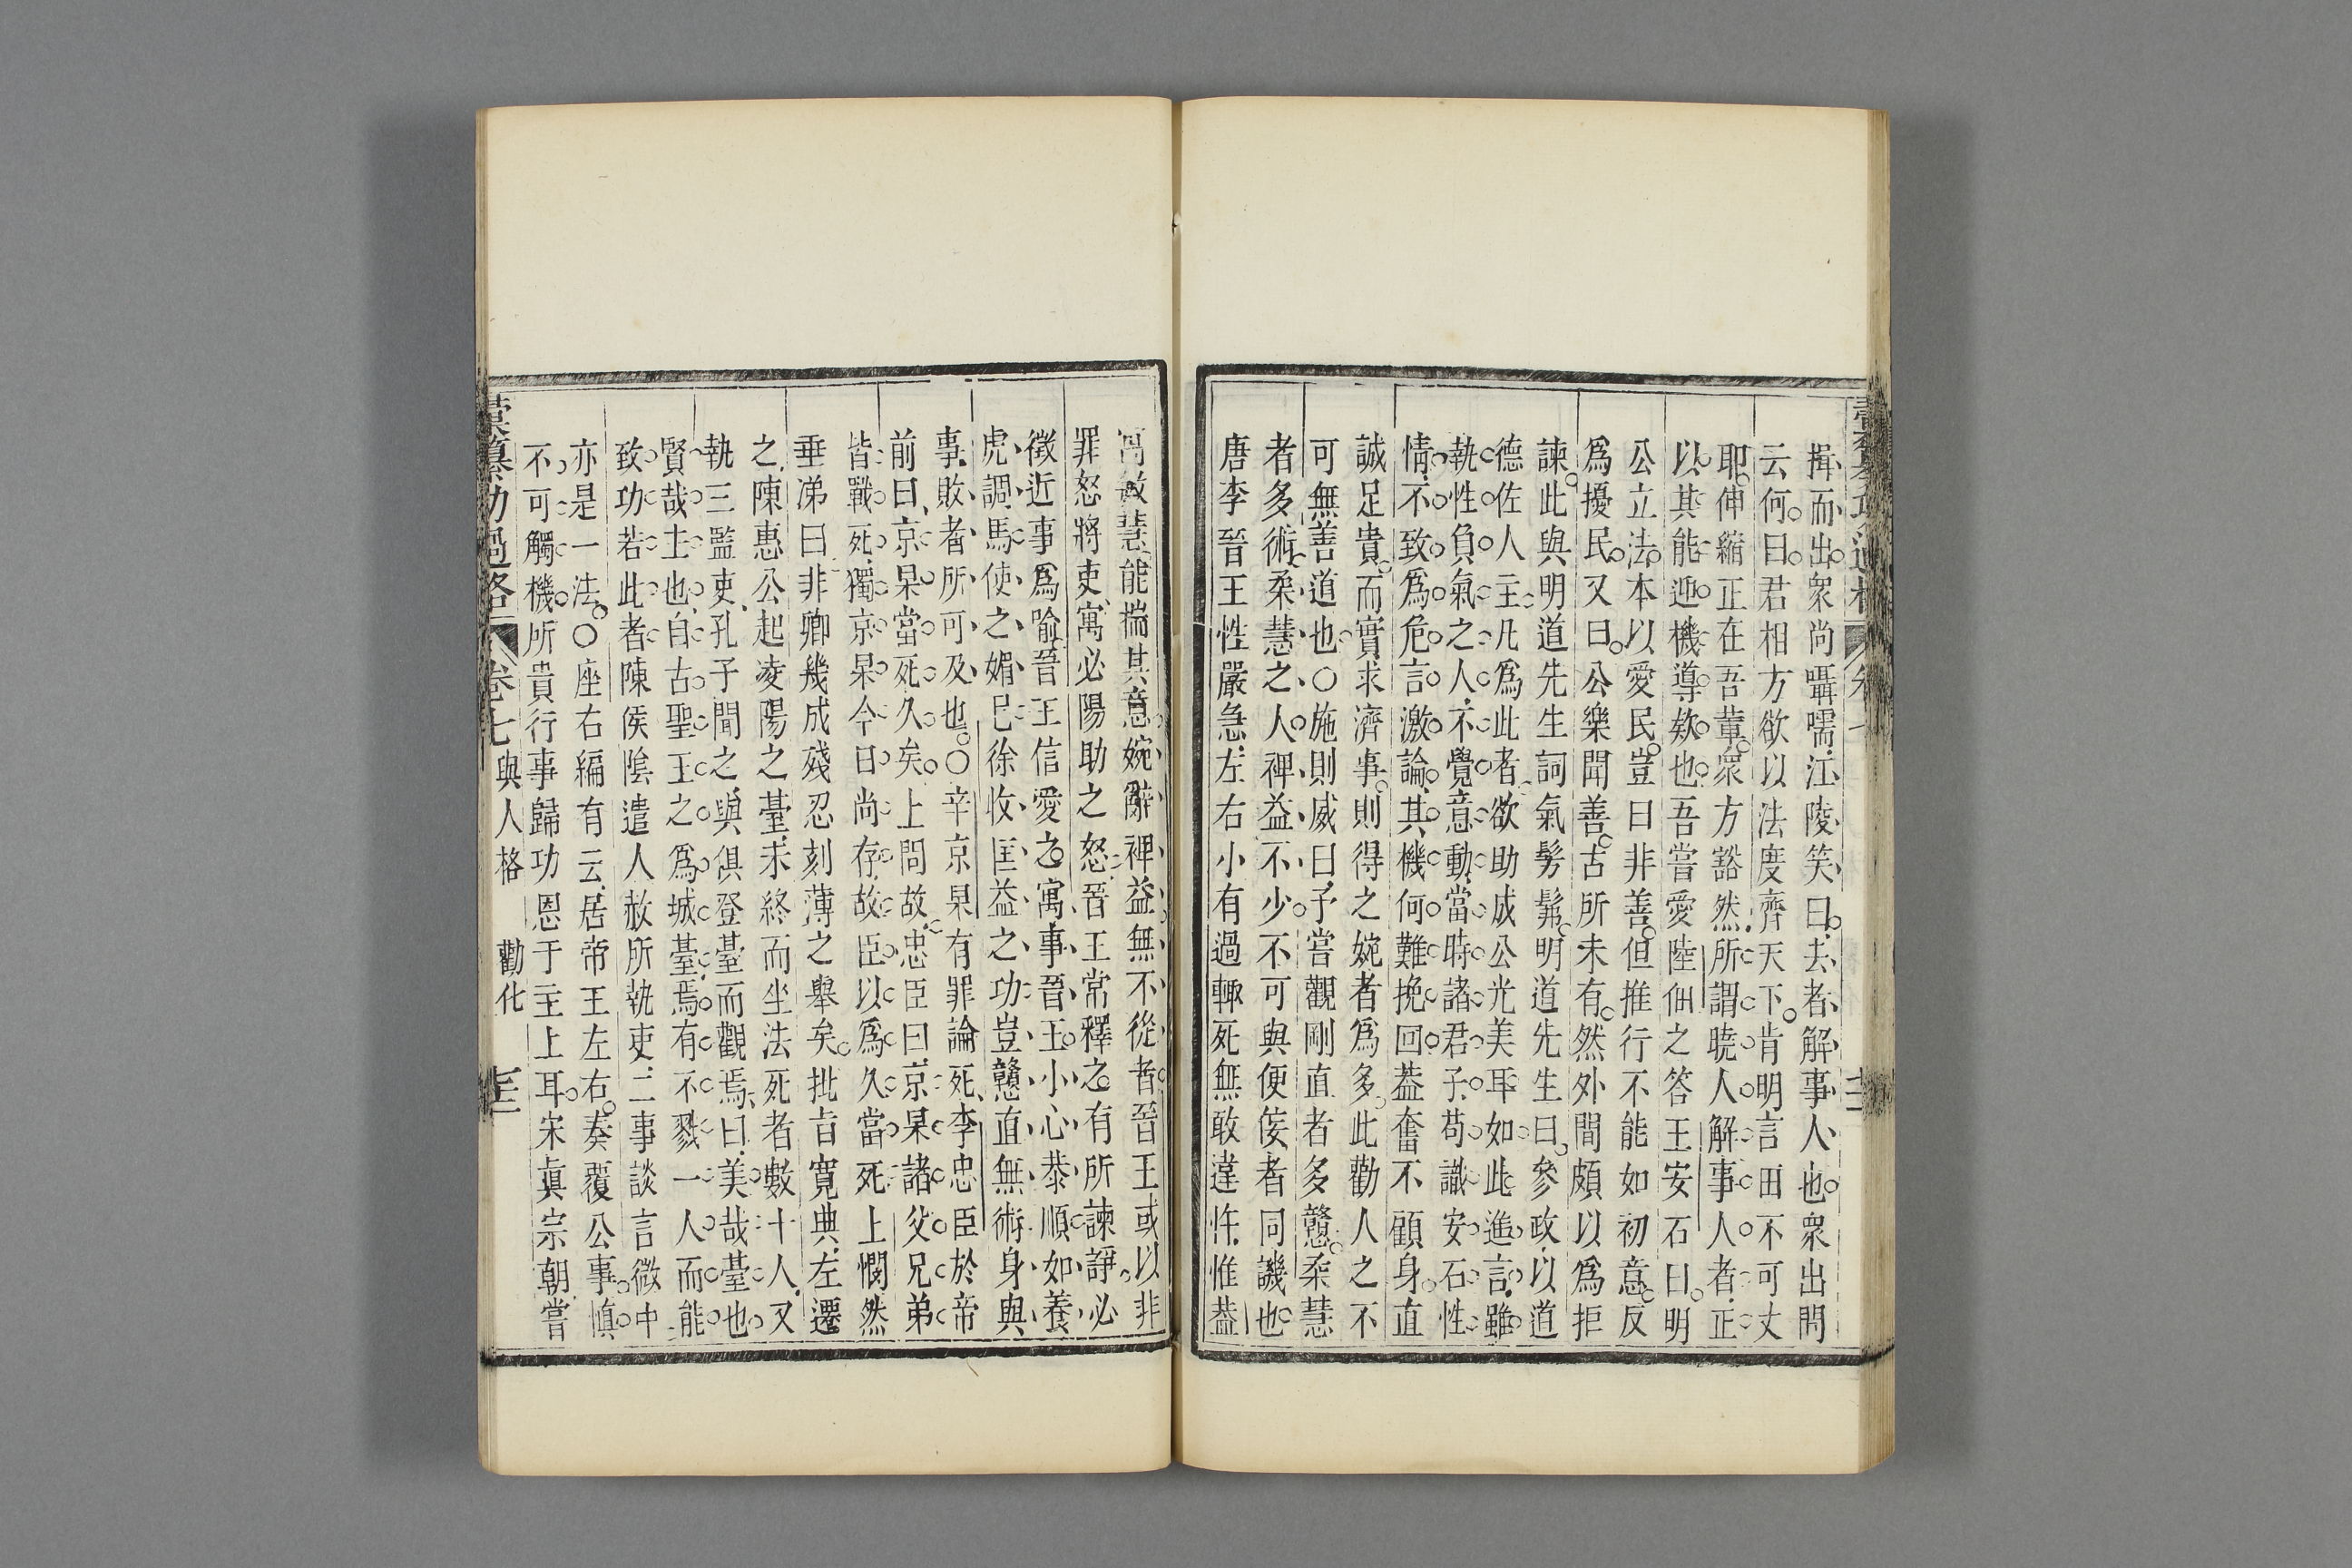 揖而出衆尚囁嚅江陵笑曰去者解事人也衆出問
云何曰君相方欲以法度齊天下肯明言田不可丈
耶伸縮正在吾輩衆方豁然所謂曉人解事人者正
以其能迎機導欵也吾嘗愛陸佃之答王安石曰明
公立法本以愛民豈曰非善但推行不能如初意反
爲擾民又曰公樂聞善古所未有然外間頗以爲拒
諫此與明道先生詞氣髣髴明道先生曰參政以道
德佐人主凡爲此者欲助成公光美耳如此進言雖
執性負氣之人不覺意動當時諸君子苟識安石性
情不致爲危言激論其機何難挽回葢奮不顧身直
誠足貴而實求濟事則得之婉者爲多此勸人之不
可無善道也○施則威曰予嘗觀剛直者多戇柔慧
者多術柔慧之人裨益不少不可與便佞者同譏也
唐李晉王性嚴急左右小有過輙死無敢違忤惟葢
寓敏慧能揣其意婉辭裨益無不從者晉王或以非
罪怒將吏寓必陽助之怒晉王常釋之有所諫諍必
徵近事爲喻晉王信愛之寓事晉王小心恭順如養
虎調馬使之媚已徐收匡益之功豈戇直無術身與
事敗者所可及也○辛京杲有罪論死李忠臣於帝
前曰京杲當死久矣上問故忠臣曰京杲諸父兄弟
皆戰死獨京杲今日尚存故臣以爲久當死上憫然
垂涕曰非卿幾成殘忍刻薄之舉矣批㫖寬典左遷
之陳惠公起凌陽之臺未終而坐法死者數十人又
執三監吏孔子聞之與俱登臺而觀焉曰美哉臺也
賢哉主也自古聖王之爲城臺焉有不戮一人而能
致功若此者陳侯陰遣人赦所執吏二事談言微中
亦是一法○座右編有云居帝王左右奏覆公事愼
不可觸機所貴行事歸功恩于主上耳宋眞宗朝嘗
彙纂功過格 卷七 與人格 勸化